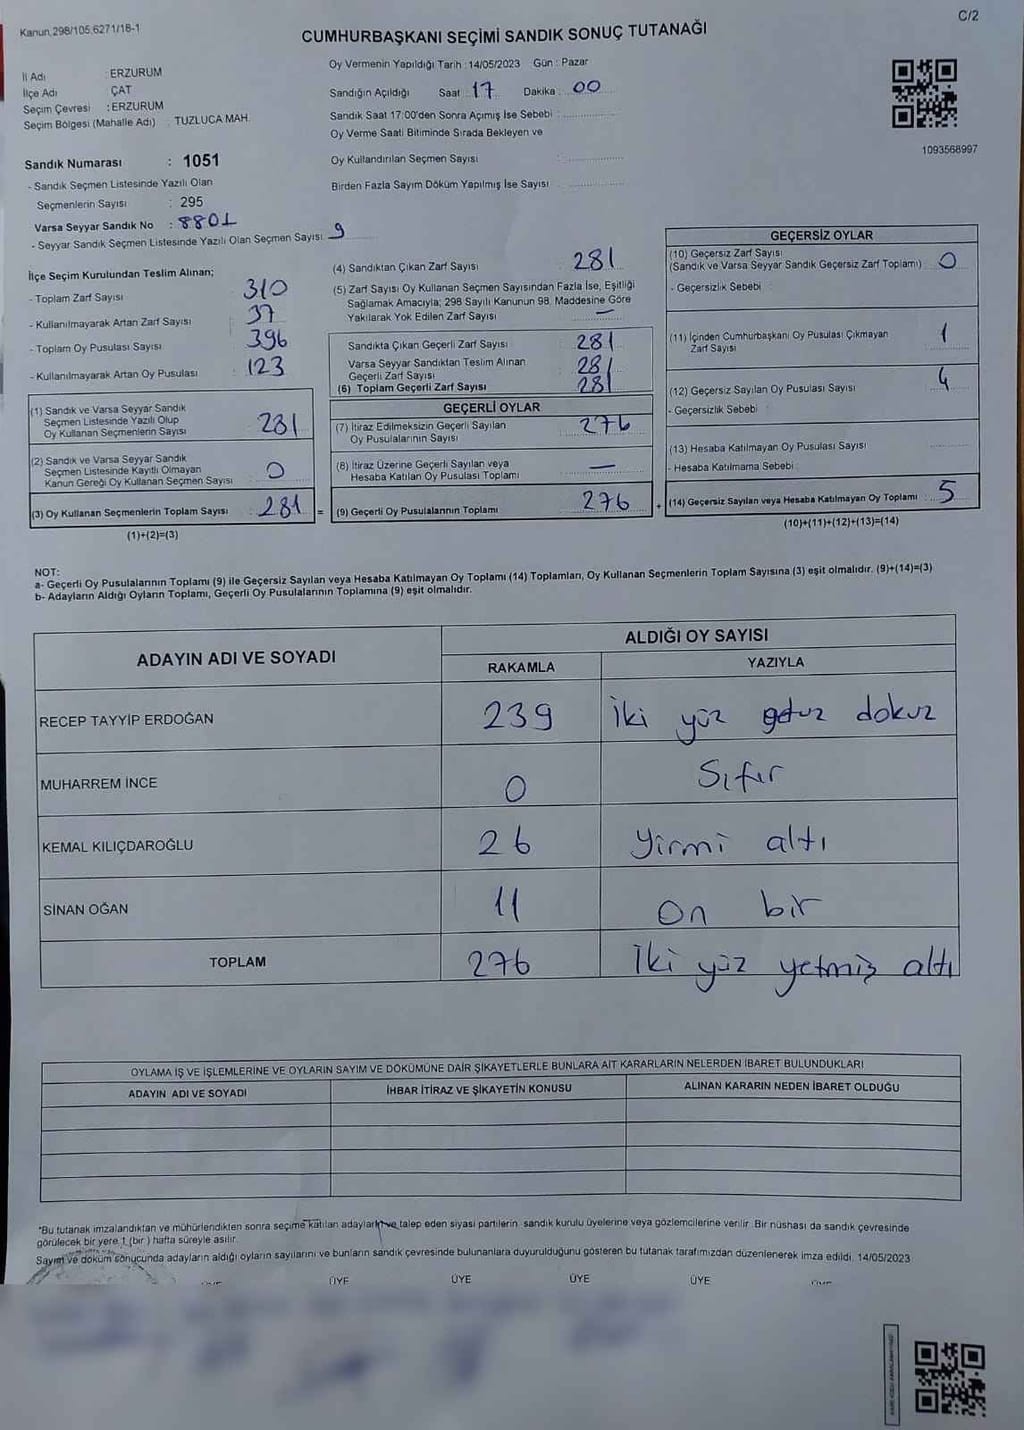 Kanun, 298/105,6271/18-1
C/2
CUMHURBAŞKANI SEÇİMİ SANDIK SONUÇ TUTANAĞI
İl Adı : ERZURUM
İlçe Adı ÇAT
Seçim Çevresi : ERZURUM
Seçim Bölgesi (Mahalle Adı) : TUZLUCA MAH.
Sandık Numarası : 1051
- Sandık Seçmen Listesinde Yazılı Olan
Seçmenlerin Sayısı : 295
Varsa Seyyar Sandık No : 8801
- Seyyar Sandık Seçmen Listesinde Yazılı Olan Seçmen Sayısı: 9
Oy Vermenin Yapıldığı Tarih : 14/05/2023 Gün : Pazar
Sandığın Açıldığı Saat : 17 Dakika : 00
Sandık Saat 17:00'den Sonra Açımış İse Sebebi :
Oy Verme Saati Bitiminde Sırada Bekleyen ve
Oy Kullandırılan Seçmen Sayısı :
Birden Fazla Sayım Döküm Yapılmış İse Sayısı :
1093568997
İlçe Seçim Kurulundan Teslim Alınan;
- Toplam Zarf Sayısı 310
- Kullanılmayarak Artan Zarf Sayısı : 37
- Toplam Oy Pusulası Sayısı : 396
- Kullanılmayarak Artan Oy Pusulası : 123
(1) Sandık ve Varsa Seyyar Sandık
Seçmen Listesinde Yazılı Olup
Oy Kullanan Seçmenlerin Sayısı 281
(2) Sandık ve Varsa Seyyar Sandık
Seçmen Listesinde Kayıtlı Olmayan
Kanun Gereği Oy Kullanan Seçmen Sayısı : 0
(3) Oy Kullanan Seçmenlerin Toplam Sayısı : 281 =
(1)+(2)=(3)
(4) Sandıktan Çıkan Zarf Sayısı 281
(5) Zarf Sayısı Oy Kullanan Seçmen Sayısından Fazla İse, Eşitliği
Sağlamak Amacıyla; 298 Sayılı Kanunun 98. Maddesine Göre
Yakılarak Yok Edilen Zarf Sayısı : —
Sandıkta Çıkan Geçerli Zarf Sayısı : 281
Varsa Seyyar Sandıktan Teslim Alınan
Geçerli Zarf Sayısı 281
(6) Toplam Geçerli Zarf Sayısı 281
GEÇERLİ OYLAR
(7) İtiraz Edilmeksizin Geçerli Sayılan
Oy Pusulalarının Sayısı : 276
(8) İtiraz Üzerine Geçerli Sayılan veya
Hesaba Katılan Oy Pusulası Toplamı : —
(9) Geçerli Oy Pusulalarının Toplamı : 276 +
GEÇERSİZ OYLAR
(10) Geçersiz Zarf Sayısı
(Sandık ve Varsa Seyyar Sandık Geçersiz Zarf Toplamı) : 0
- Geçersizlik Sebebi :
(11) İçinden Cumhurbaşkanı Oy Pusulası Çıkmayan
Zarf Sayısı : 1
(12) Geçersiz Sayılan Oy Pusulası Sayısı : 4
- Geçersizlik Sebebi :
(13) Hesaba Katılmayan Oy Pusulası Sayısı :
- Hesaba Katılmama Sebebi :
(14) Geçersiz Sayılan veya Hesaba Katılmayan Oy Toplamı : 5
(10)+(11)+(12)+(13)=(14)
NOT:
a- Geçerli Oy Pusulalarının Toplamı (9) ile Geçersiz Sayılan veya Hesaba Katılmayan Oy Toplamı (14) Toplamları, Oy Kullanan Seçmenlerin Toplam Sayısına (3) eşit olmalıdır. (9)+(14)=(3)
b- Adayların Aldığı Oyların Toplamı, Geçerli Oy Pusulalarının Toplamına (9) eşit olmalıdır.
ADAYIN ADI VE SOYADI
ALDIĞI OY SAYISI
RAKAMLA YAZIYLA
RECEP TAYYİP ERDOĞAN 239 İki yüz otuz dokuz
MUHARREM İNCE 0 Sıfır
KEMAL KILIÇDAROĞLU 26 Yirmi altı
SİNAN OĞAN 11 On bir
TOPLAM 276 İki yüz yetmiş altı
OYLAMA İŞ VE İŞLEMLERİNE VE OYLARIN SAYIM VE DÖKÜMÜNE DAİR ŞİKAYETLERLE BUNLARA AİT KARARLARIN NELERDEN İBARET BULUNDUKLARI
ADAYIN ADI VE SOYADI İHBAR İTİRAZ VE ŞİKAYETİN KONUSU ALINAN KARARIN NEDEN İBARET OLDUĞU
*Bu tutanak imzalandıktan ve mühürlendikten sonra seçime katılan adaylarla ve talep eden siyasi partilerin sandık kurulu üyelerine veya gözlemcilerine verilir. Bir nüshası da sandık çevresinde
görülecek bir yere 1 (bir) hafta süreyle asılır.
Sayım ve döküm sonucunda adayların aldığı oyların sayılarını ve bunların sandık çevresinde bulunanlara duyurulduğunu gösteren bu tutanak tarafımızdan düzenlenerek imza edildi. 14/05/2023
ÜYE ÜYE ÜYE ÜYE